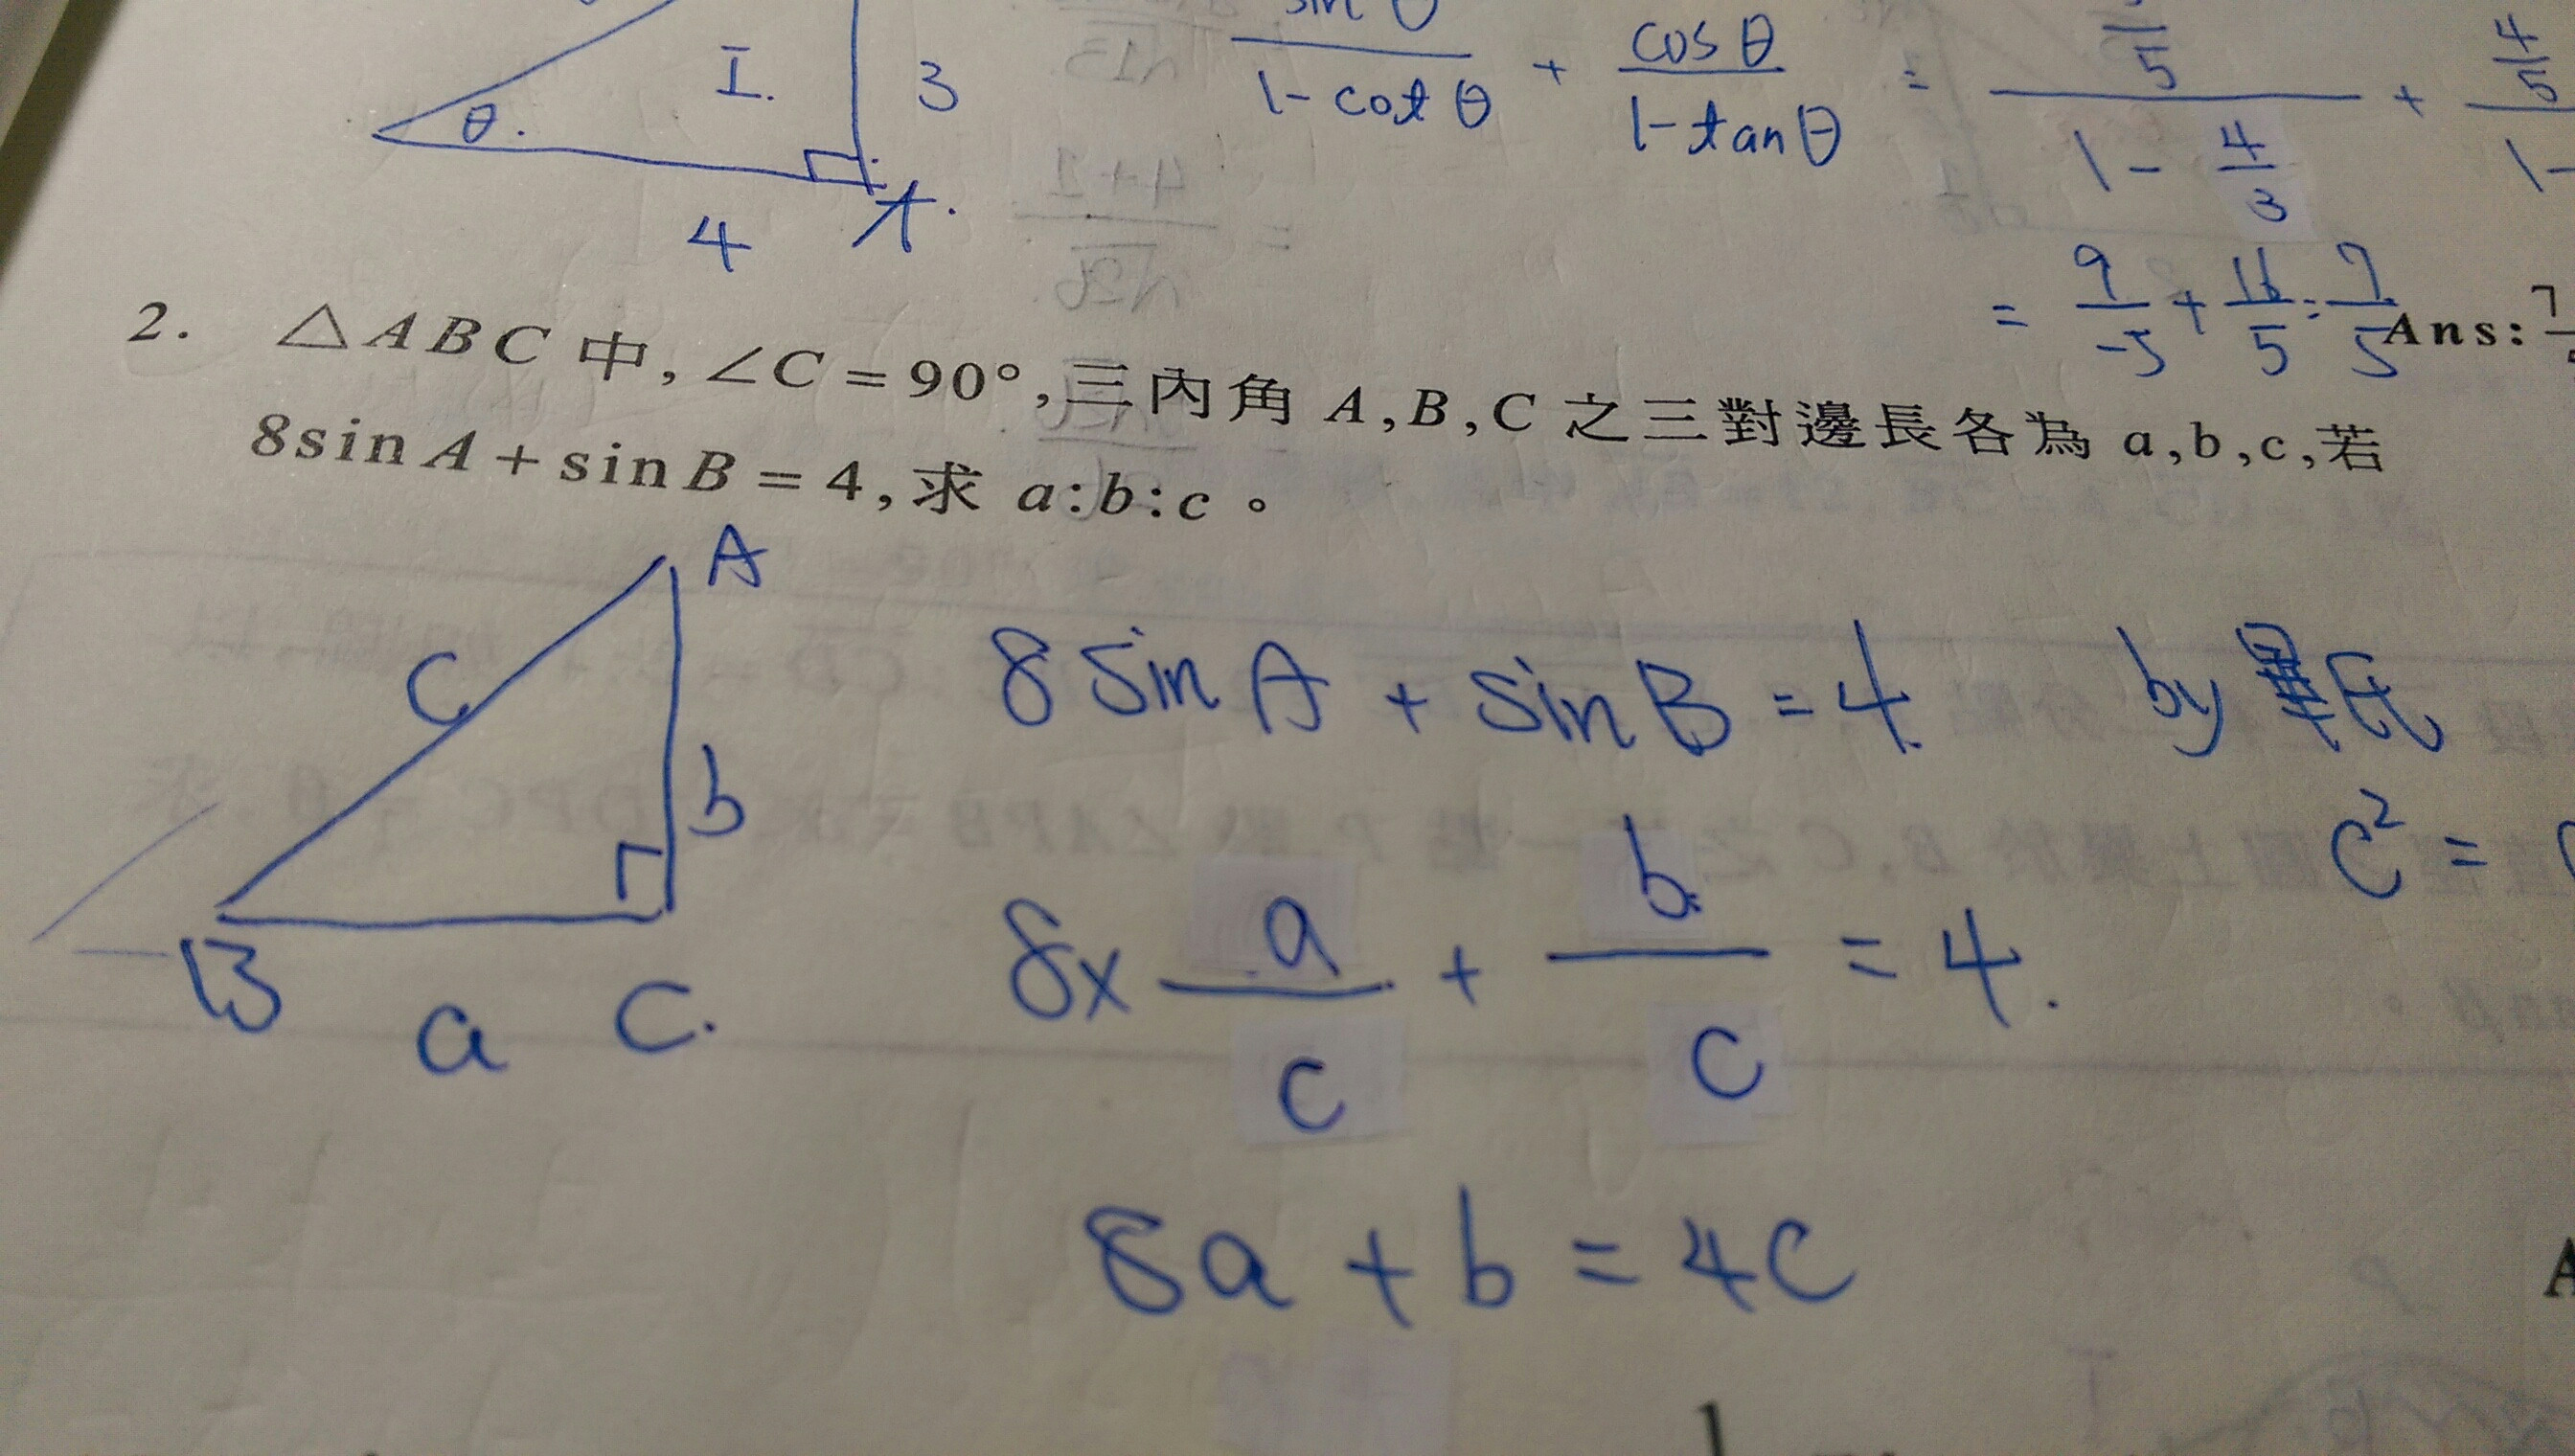 I.
3
θ.
4
sin θ / 1-cotθ + cosθ / 1-tanθ = /5 / 1- 4/3 + 4/5 / 1-
= 9/-5 + 16/5 = 7/5
Ans: 7
2. △ABC 中,∠C=90°,三內角 A,B,C 之三對邊長各為 a,b,c,若
8sinA+sinB=4,求 a:b:c。
A
C
b
B
a
C.
8 sin A + sin B = 4 by 畢氏
8x a/c + b/c = 4.
C² =
8a + b = 4C
A